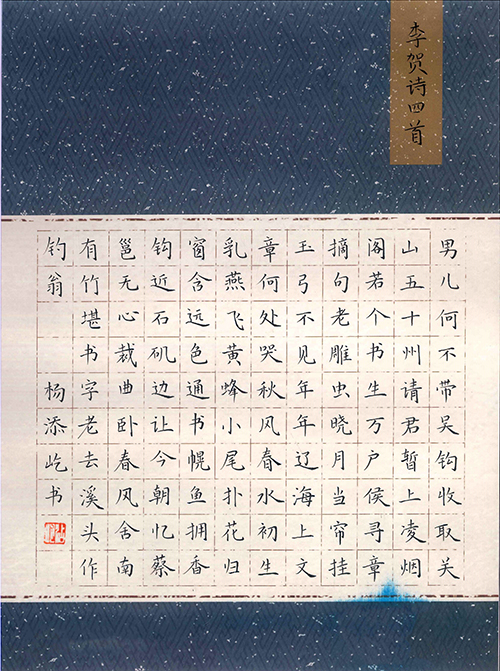 李贺诗四首
男儿何不带吴钩收取关
山五十州请君暂上凌烟
阁若个书生万户侯寻章
摘句老雕虫晓月当帘挂
玉弓不见年年辽海上文
章何处哭秋风春水初生
乳燕飞黄蜂小尾扑花归
窗含远色通书幌鱼拥香
钩近石矶边让今朝忆蔡
邕无心裁曲卧春风舍南
有竹堪书字老去溪头作
钓翁 杨添屹书